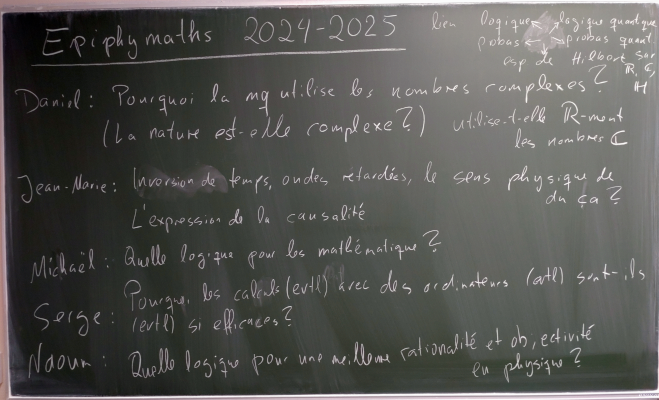 Epiphymaths 2024-2025
lien logique logique quantique
probas probas quant
esp de Hilbert sur
R, C,
H
Daniel : Pourquoi la mq utilise les nombres complexes ?
(La nature est-elle complexe ?) utilise-t-elle R-ment
les nombres C
Jean-Marie : Inversion de temps, ondes retardées, le sens physique de
du ça ?
L'expression de la causalité
Michaël : Quelle logique pour les mathématique ?
Serge : Pourquoi les calculs (evtl) avec des ordinateurs (evtl) sont-ils
(evtl) si efficaces ?
Naoum : Quelle logique pour une meilleure rationalité et objectivité
en physique ?